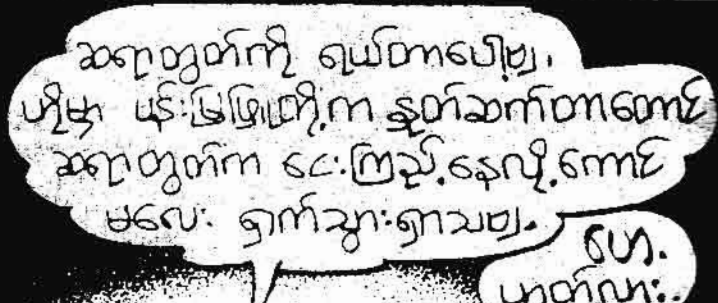 ဆရာတွတ်ကို ရယ်တာပေါ့ဗျ.
ဟိုမှာ ပန်းခြံဖြူတို့က နှုတ်ဆက်တာတောင်
ဆရာတွတ်က ငေးကြည့်နေလို့ ကောင်
မလေး ရှက်သွားရှာသဗျ.
ဟေ.
ဟုတ်လား